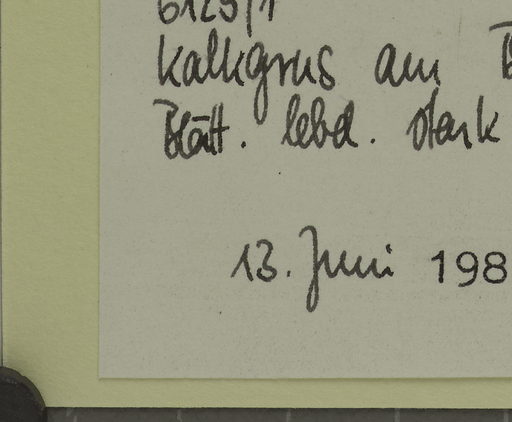 6125/1
Kalkgrus am
Blätt. lebd. stark
13. Juni 198